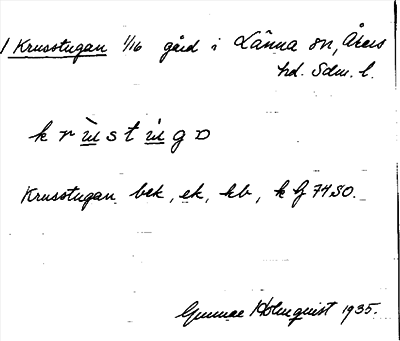 1 Krusstugan 1/16 gård i Länna sn, Åkers
hd. Sdm. l.
k r ù s t i g ɒ
Krusstugan bek, ek, kb, k Bf 74 SO.
Gunnar Holmquist 1935.